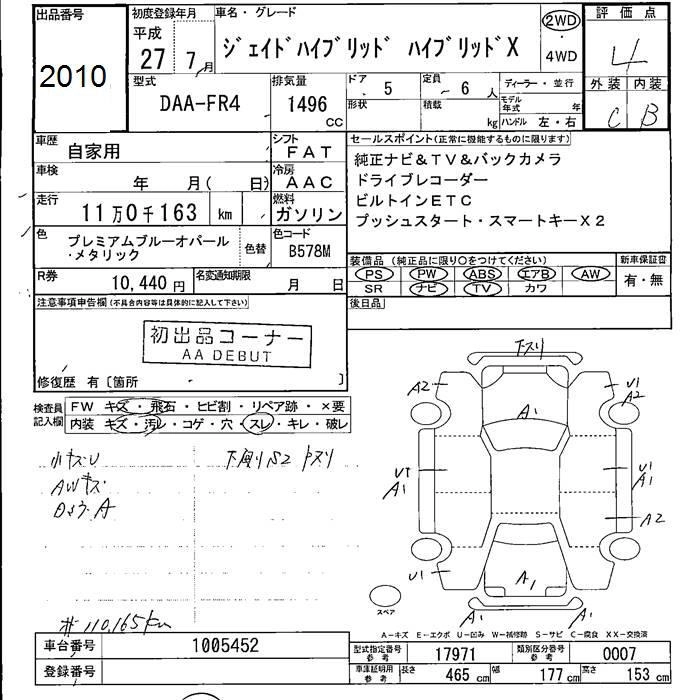 出品番号 初度登録年月 車名・グレード 2WD 評価点
2010 平成 27 7月 ジェイドハイブリッド ハイブリッドX ・ 4
4WD
型式 排気量 ドア 5 定員 6 人 ディーラー・並行 外装 内装
DAA-FR4 1496 CC 形状 積載 kg モデル年式 年 C B
ハンドル 左・右
車歴 自家用 シフト FAT セールスポイント(正常に機能するものに限ります)
車検 年 月( 日) 冷房 AAC 純正ナビ&TV&バックカメラ
ドライブレコーダー
走行 11万0千163 km 燃料 ガソリン ビルトインETC
プッシュスタート・スマートキーX2
色 プレミアムブルーオパール・メタリック 色替 色コード B578M
装備品 (純正品に限り○をつけてください) 新車保証書
PS PW ABS エアB AW 有・無
R券 10,440円 名変通知期限 月 日 SR ナビ TV カワ
注意事項申告欄(不具合内容等は具体的に記入して下さい) 後日品
初出品コーナー
AA DEBUT
修復歴 有〔箇所 〕
検査員記入欄 FW キズ・飛石・ヒビ割・リペア跡・X要
内装 キズ・汚れ・コゲ・穴・スレ・キレ・破レ
小キズU
AWキズ
A
下スリ
A2 U1
A2
A1
U1 U1
A1 A1
A2
U1 A1
スペア A1 A1
A-キズ E-エクボ U-凹み W-補修跡 S-サビ C-腐食 XX-交換済
# 110,165km
車台番号 1005452 型式指定番号 参考 17971 類別区分番号 参考 0007
登録番号 車庫証明用 参考 長さ 465 cm 幅 177 cm 高さ 153 cm